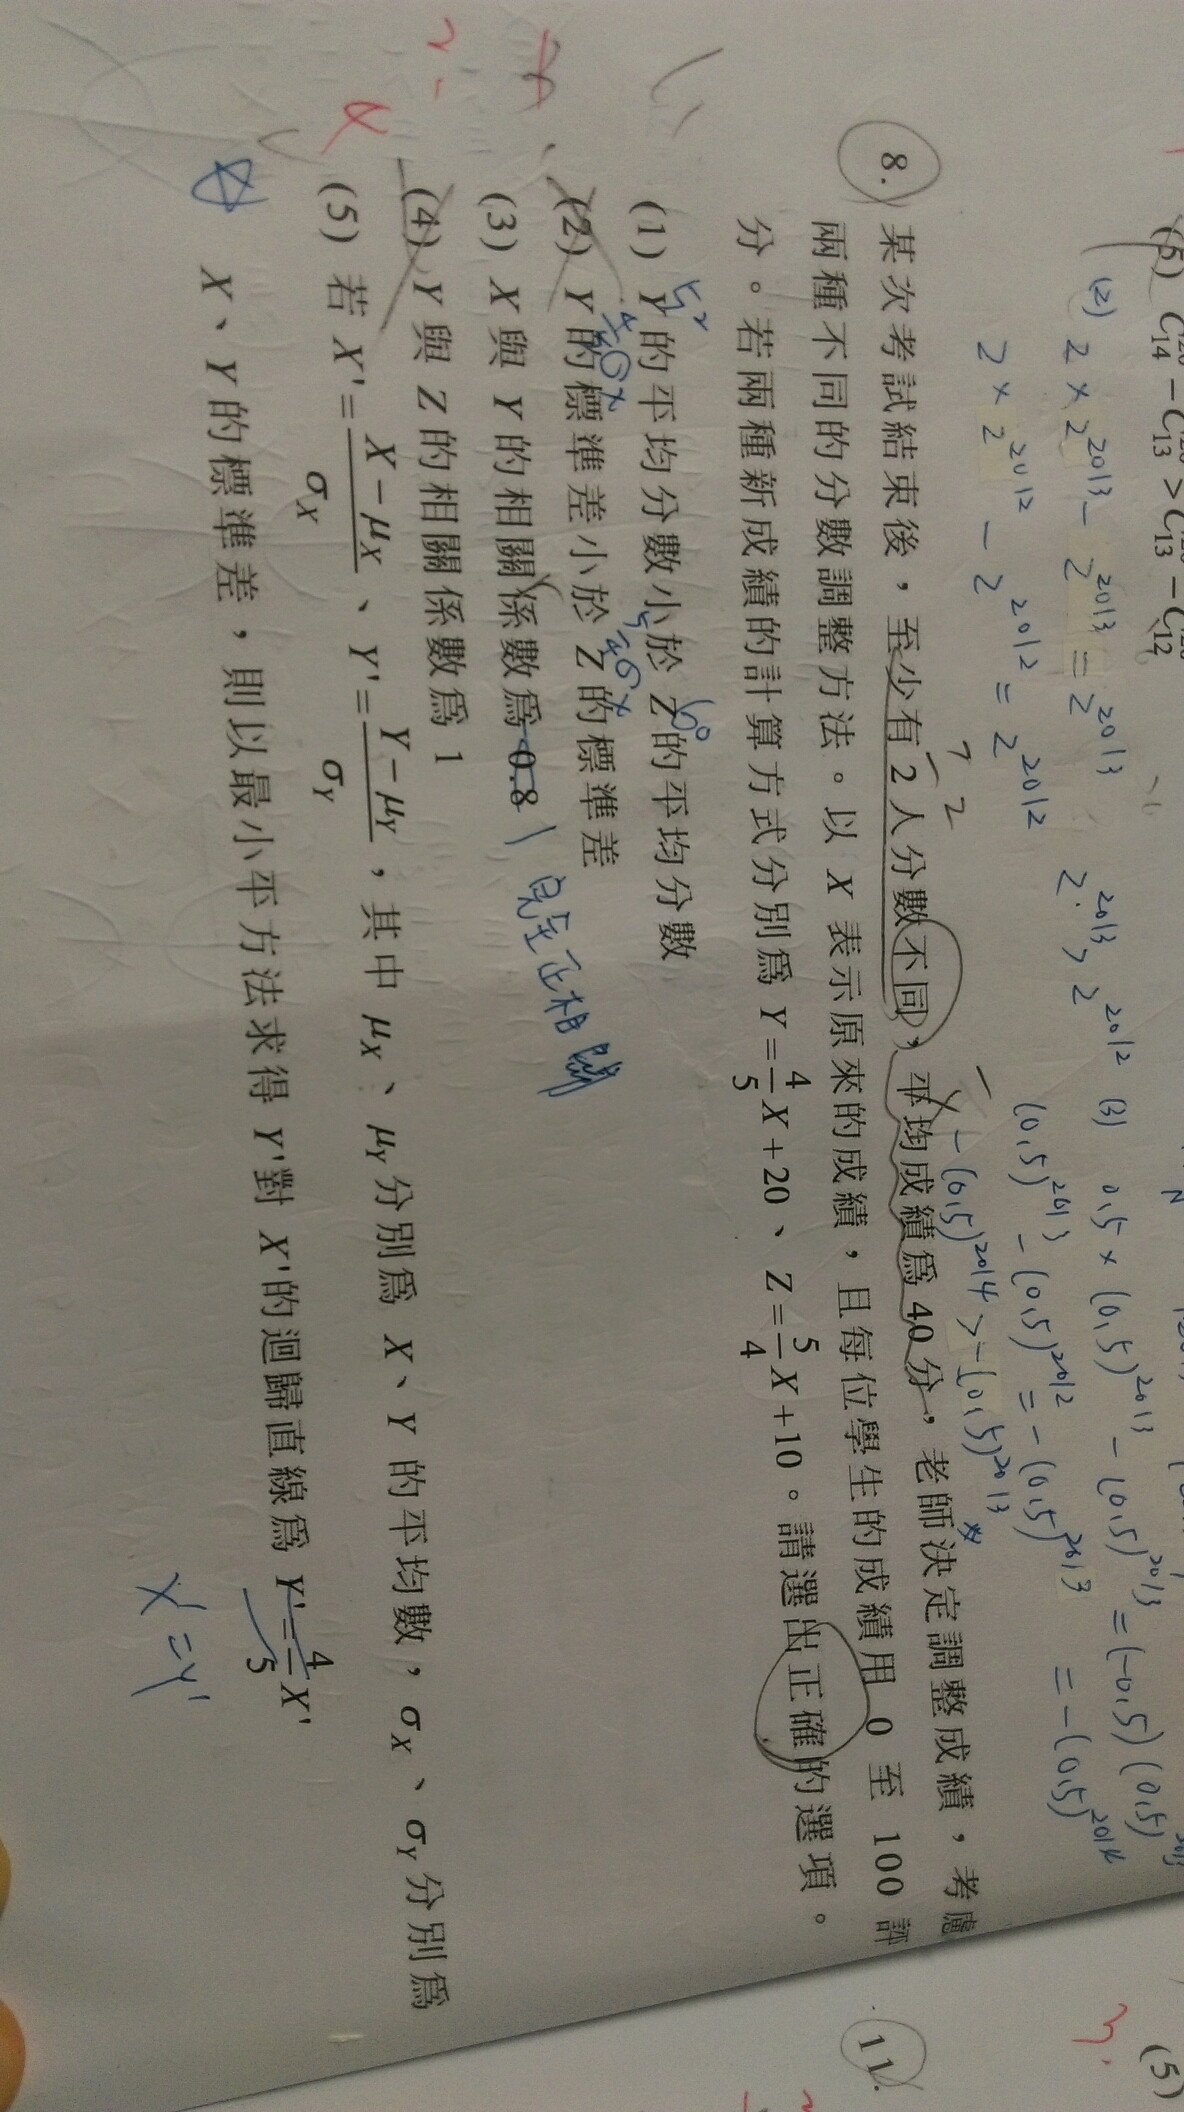 (5) C14 − C13 > C13 − C12
(2) 2 × 2^2013 − 2^2013 = 2^2013
2 × 2^2012 − 2^2012 = 2^2012
2^2013 > 2^2012
(3) 0.5 × (0.5)^2013 − (0.5)^2013 = (−0.5)(0.5)^2013
= −(0.5)^2014
(0.5)^2013 − (0.5)^2012 = −(0.5)^2013
−(0.5)^2014 > −(0.5)^2013
8. 某次考試結束後，至少有 2 人分數不同，平均成績為 40 分，老師決定調整成績，考慮
兩種不同的分數調整方法。以 X 表示原來的成績，且每位學生的成績用 0 至 100 評
分。若兩種新成績的計算方式分別為 Y=4/5X+20、Z=5/4X+10。請選出正確的選項。
52
60
(1) Y 的平均分數小於 Z 的平均分數
4/5σx
5/4σx
(2) Y 的標準差小於 Z 的標準差
(3) X 與 Y 的相關係數為 0.8
1 完全正相關
(4) Y 與 Z 的相關係數為 1
(5) 若 X'=(X−μX)/σX、Y'=(Y−μY)/σY，其中 μX、μY 分別為 X、Y 的平均數，σX、σY 分別為
X、Y 的標準差，則以最小平方法求得 Y'對 X'的迴歸直線為 Y'=4/5X'
X'=Y'
11.
3.
(5)